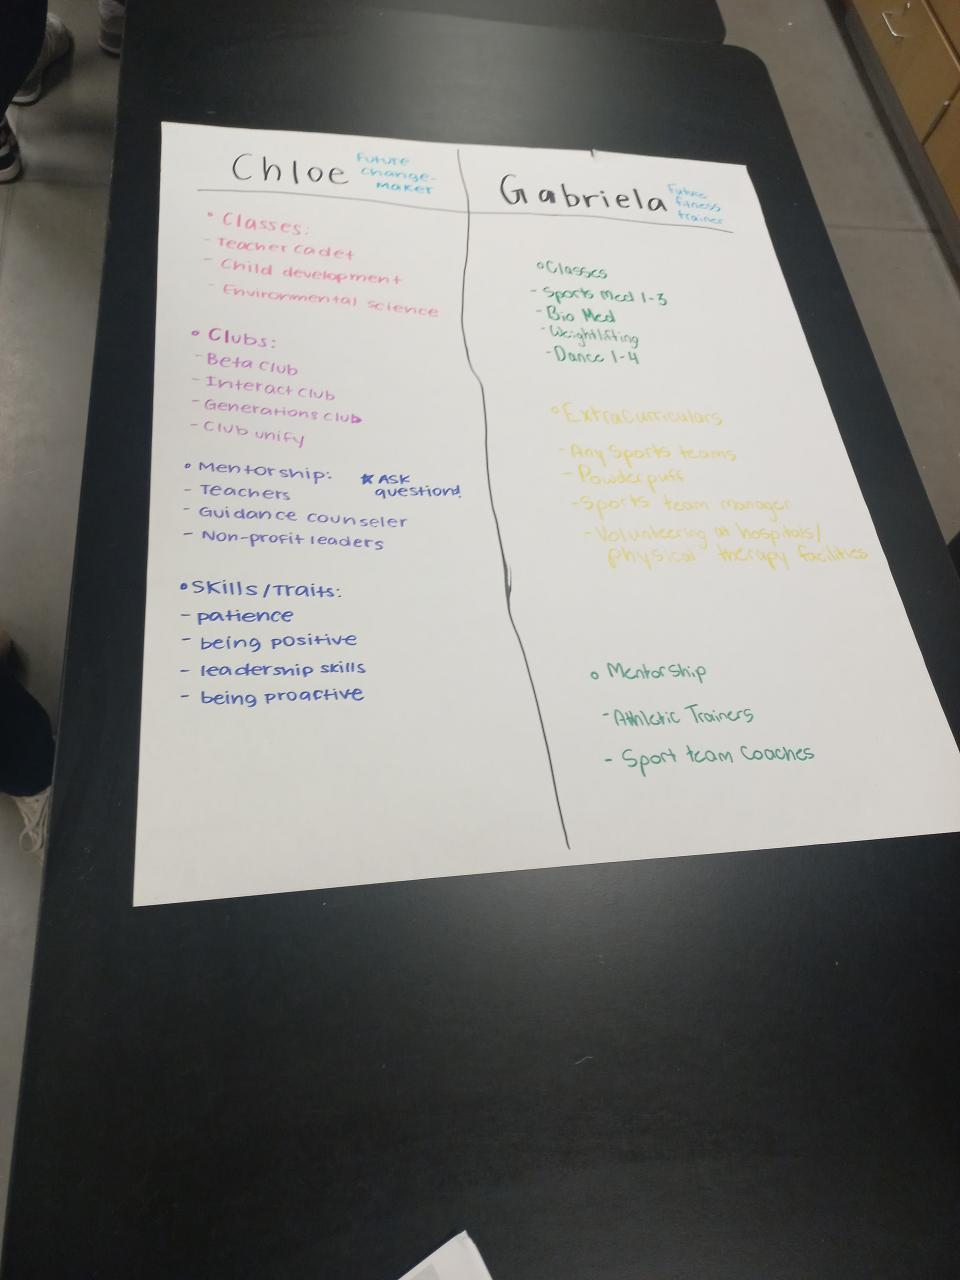 Chloe
Future
change-
maker
• Classes:
- Teacher cadet
- Child development
- Environmental science
• Clubs:
- Beta club
- Interact club
- Generations club
- Club unify
• Mentorship:
* ASK
question!
- Teachers
- Guidance counseler
- Non-profit leaders
• Skills/Traits:
- patience
- being positive
- leadership skills
- being proactive
Gabriela
Future
fitness
trainer
• Classes
- Sports Med 1-3
- Bio Med
- Weightlifting
- Dance 1-4
• Extracurriculars
- Any Sports teams
- Powderpuff
- Sports team manager
- Volunteering at hospitals/
physical therapy facilities
• Mentorship
- Athletic Trainers
- Sport team Coaches